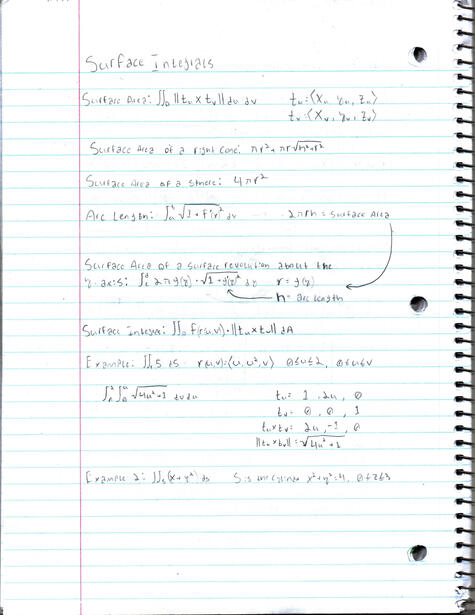 Surface Integrals
Surface Area: ∬_D ||t_u × t_v|| du dv t_u: ⟨x_u, y_u, z_u⟩
t_v: ⟨x_v, y_v, z_v⟩
Surface Area of a right cone: πr² + πr√h²+r²
Surface Area of a sphere: 4πr²
Arc Length: ∫ √1 + f'(x)² dx 2πrh = Surface Area
Surface Area of a surface revolution about the
y-axis: ∫_c^d 2π g(y) · √1 + g'(y)² dy r = g(y)
h = arc length
Surface Integral: ∬_D f(r(u,v)) · ||t_u × t_v|| dA
Example: ∬_S 5 ds r(u,v) = ⟨u, u², v⟩ 0≤u≤2, 0≤u≤v
∫ ∫ √4u²+1 dv du t_u = 1, 2u, 0
t_v = 0, 0, 1
t_u × t_v = 2u, -1, 0
||t_u × t_v|| = √4u²+1
Example 2: ∬_S (x + y²) ds S is the cylinder x²+y²=4, 0≤z≤3